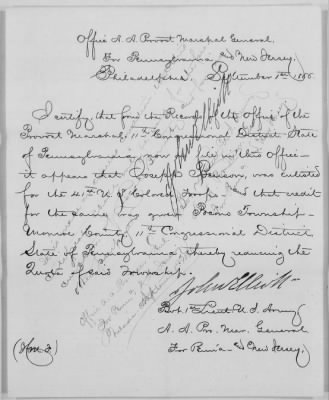 Office A. A. Provost Marshal General,
For Pennsylvania and New Jersey,
Philadelphia, September 1st 1866
I certify, that from the Records of the Office of the
Provost Marshal, 11th Congressional District State
of Pennsylvania, now on file in this Office—
it appears that Joseph was enlisted
for the 41st U. S. Colored Troops and that credit
for the same was given Township—
Monroe County, 11th Congressional District
State of Pennsylvania, thereby reducing the
Quota of said Township.
John Elliott
Bvt. 1st Lieut U. S. Army
A. A. Pro. Mar. General
For Penn'a and New Jersey,